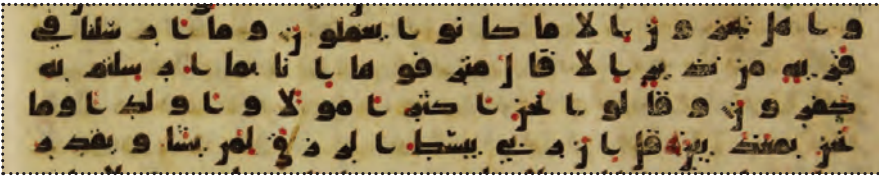 وا هل يجزون الا ما كانوا يعملون وما ارسلنا في
قرية من نذير الا قال مترفوها انا بما ارسلتم به
كفرون وقالوا نحن اكثر امولا واولدا وما
نحن بمعذبين قل ان ربي يبسط الرزق لمن يشا ويقدر